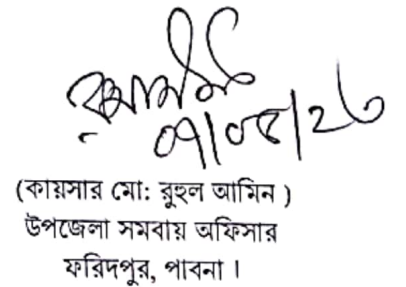 ০৭/০৫/২৬
(কায়সার মো: রুহুল আমিন )
উপজেলা সমবায় অফিসার
ফরিদপুর, পাবনা ।